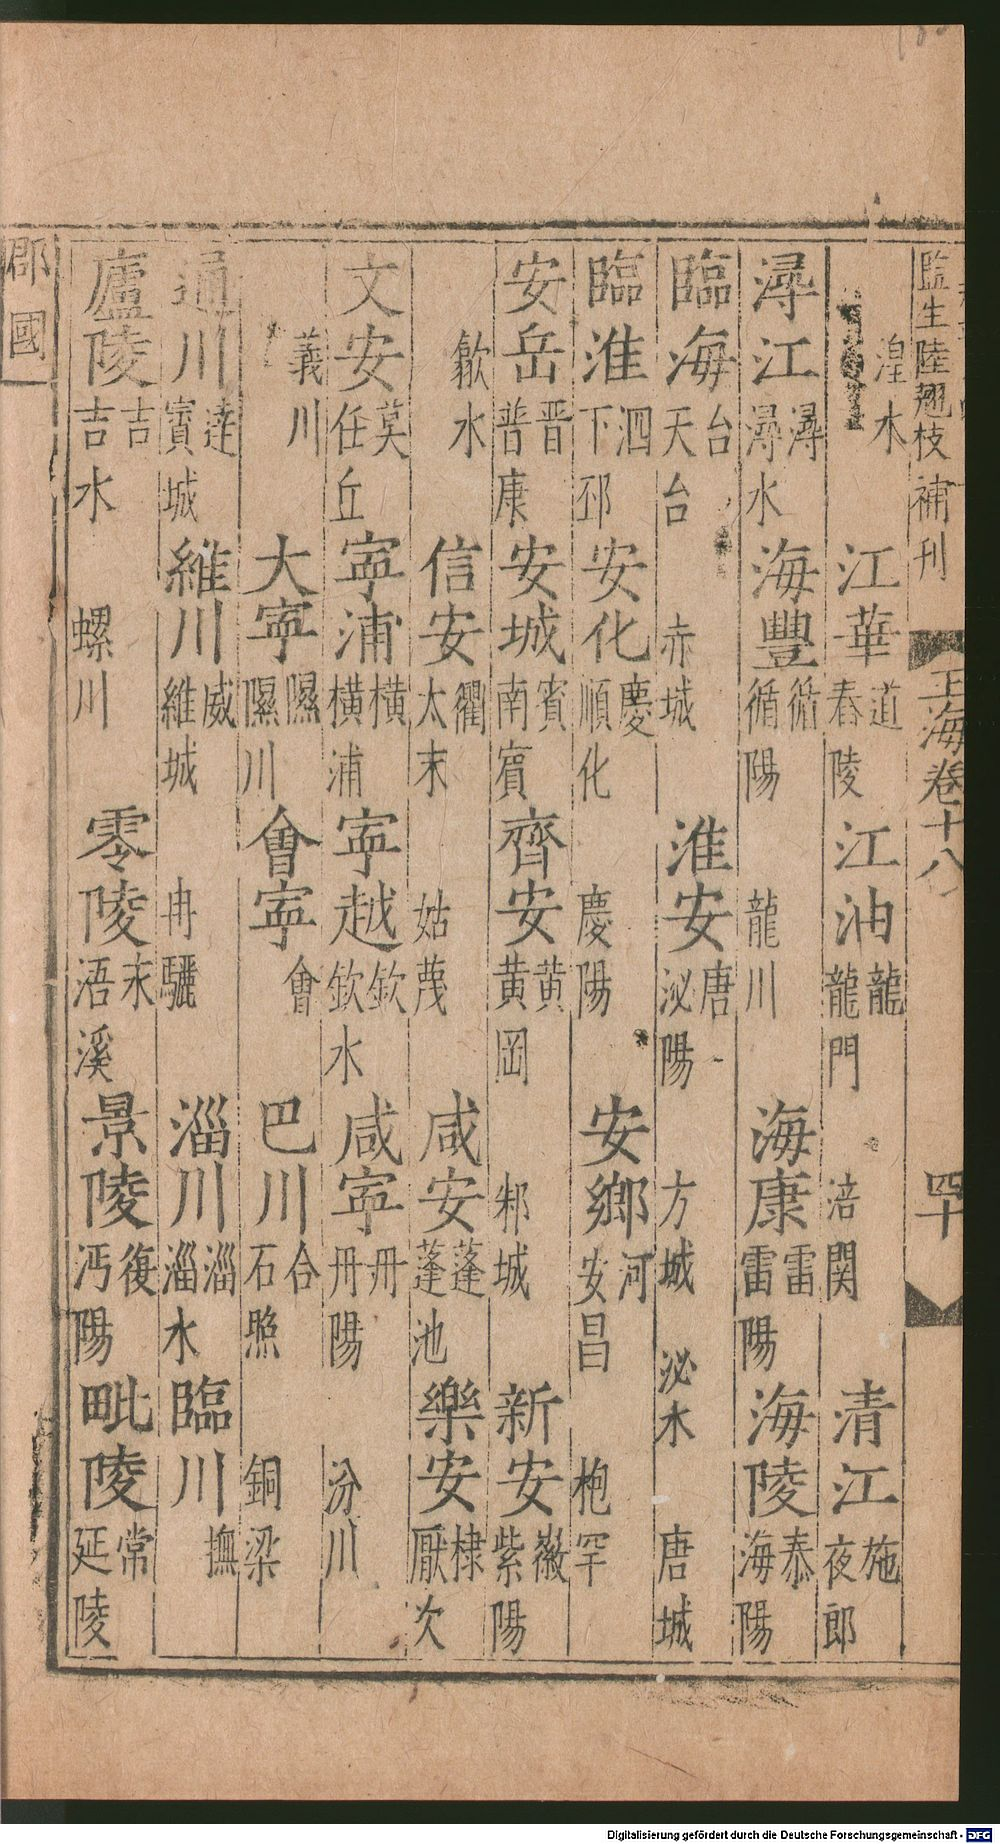 監生陸翹枝補刊
玉海卷十八 四十
湟水 江華 道 舂陵 江油 龍 龍門 涪關 清江 施 夜郎
潯江 潯 潯水 海豐 循 循陽 龍川 海康 雷 雷陽 海陵 泰 海陽
臨海 台 天台 赤城 淮安 唐 泌陽 方城 泌水 唐城
臨淮 泗 下邳 安化 慶 順化 慶陽 安鄉 河 安昌 枹罕
安岳 普 普康 安城 賓 南賓 齊安 黃 黃岡 邾城 新安 徽 紫陽
歙水 信安 衢 太末 姑蔑 咸安 蓬 蓬池 樂安 棣 厭次
文安 莫 任丘 寧浦 橫 橫浦 寧越 欽 欽水 咸寧 丹 丹陽 汾川
義川 大寧 隰 隰川 會寧 會 巴川 合 石照 銅梁
通川 達 賨城 維川 威 維城 冉駹 淄川 淄 淄水 臨川 撫
廬陵 吉 吉水 螺川 零陵 永 浯溪 景陵 復 沔陽 毗陵 常 延陵
郡國
Digitalisierung gefördert durch die Deutsche Forschungsgemeinschaft - DFG